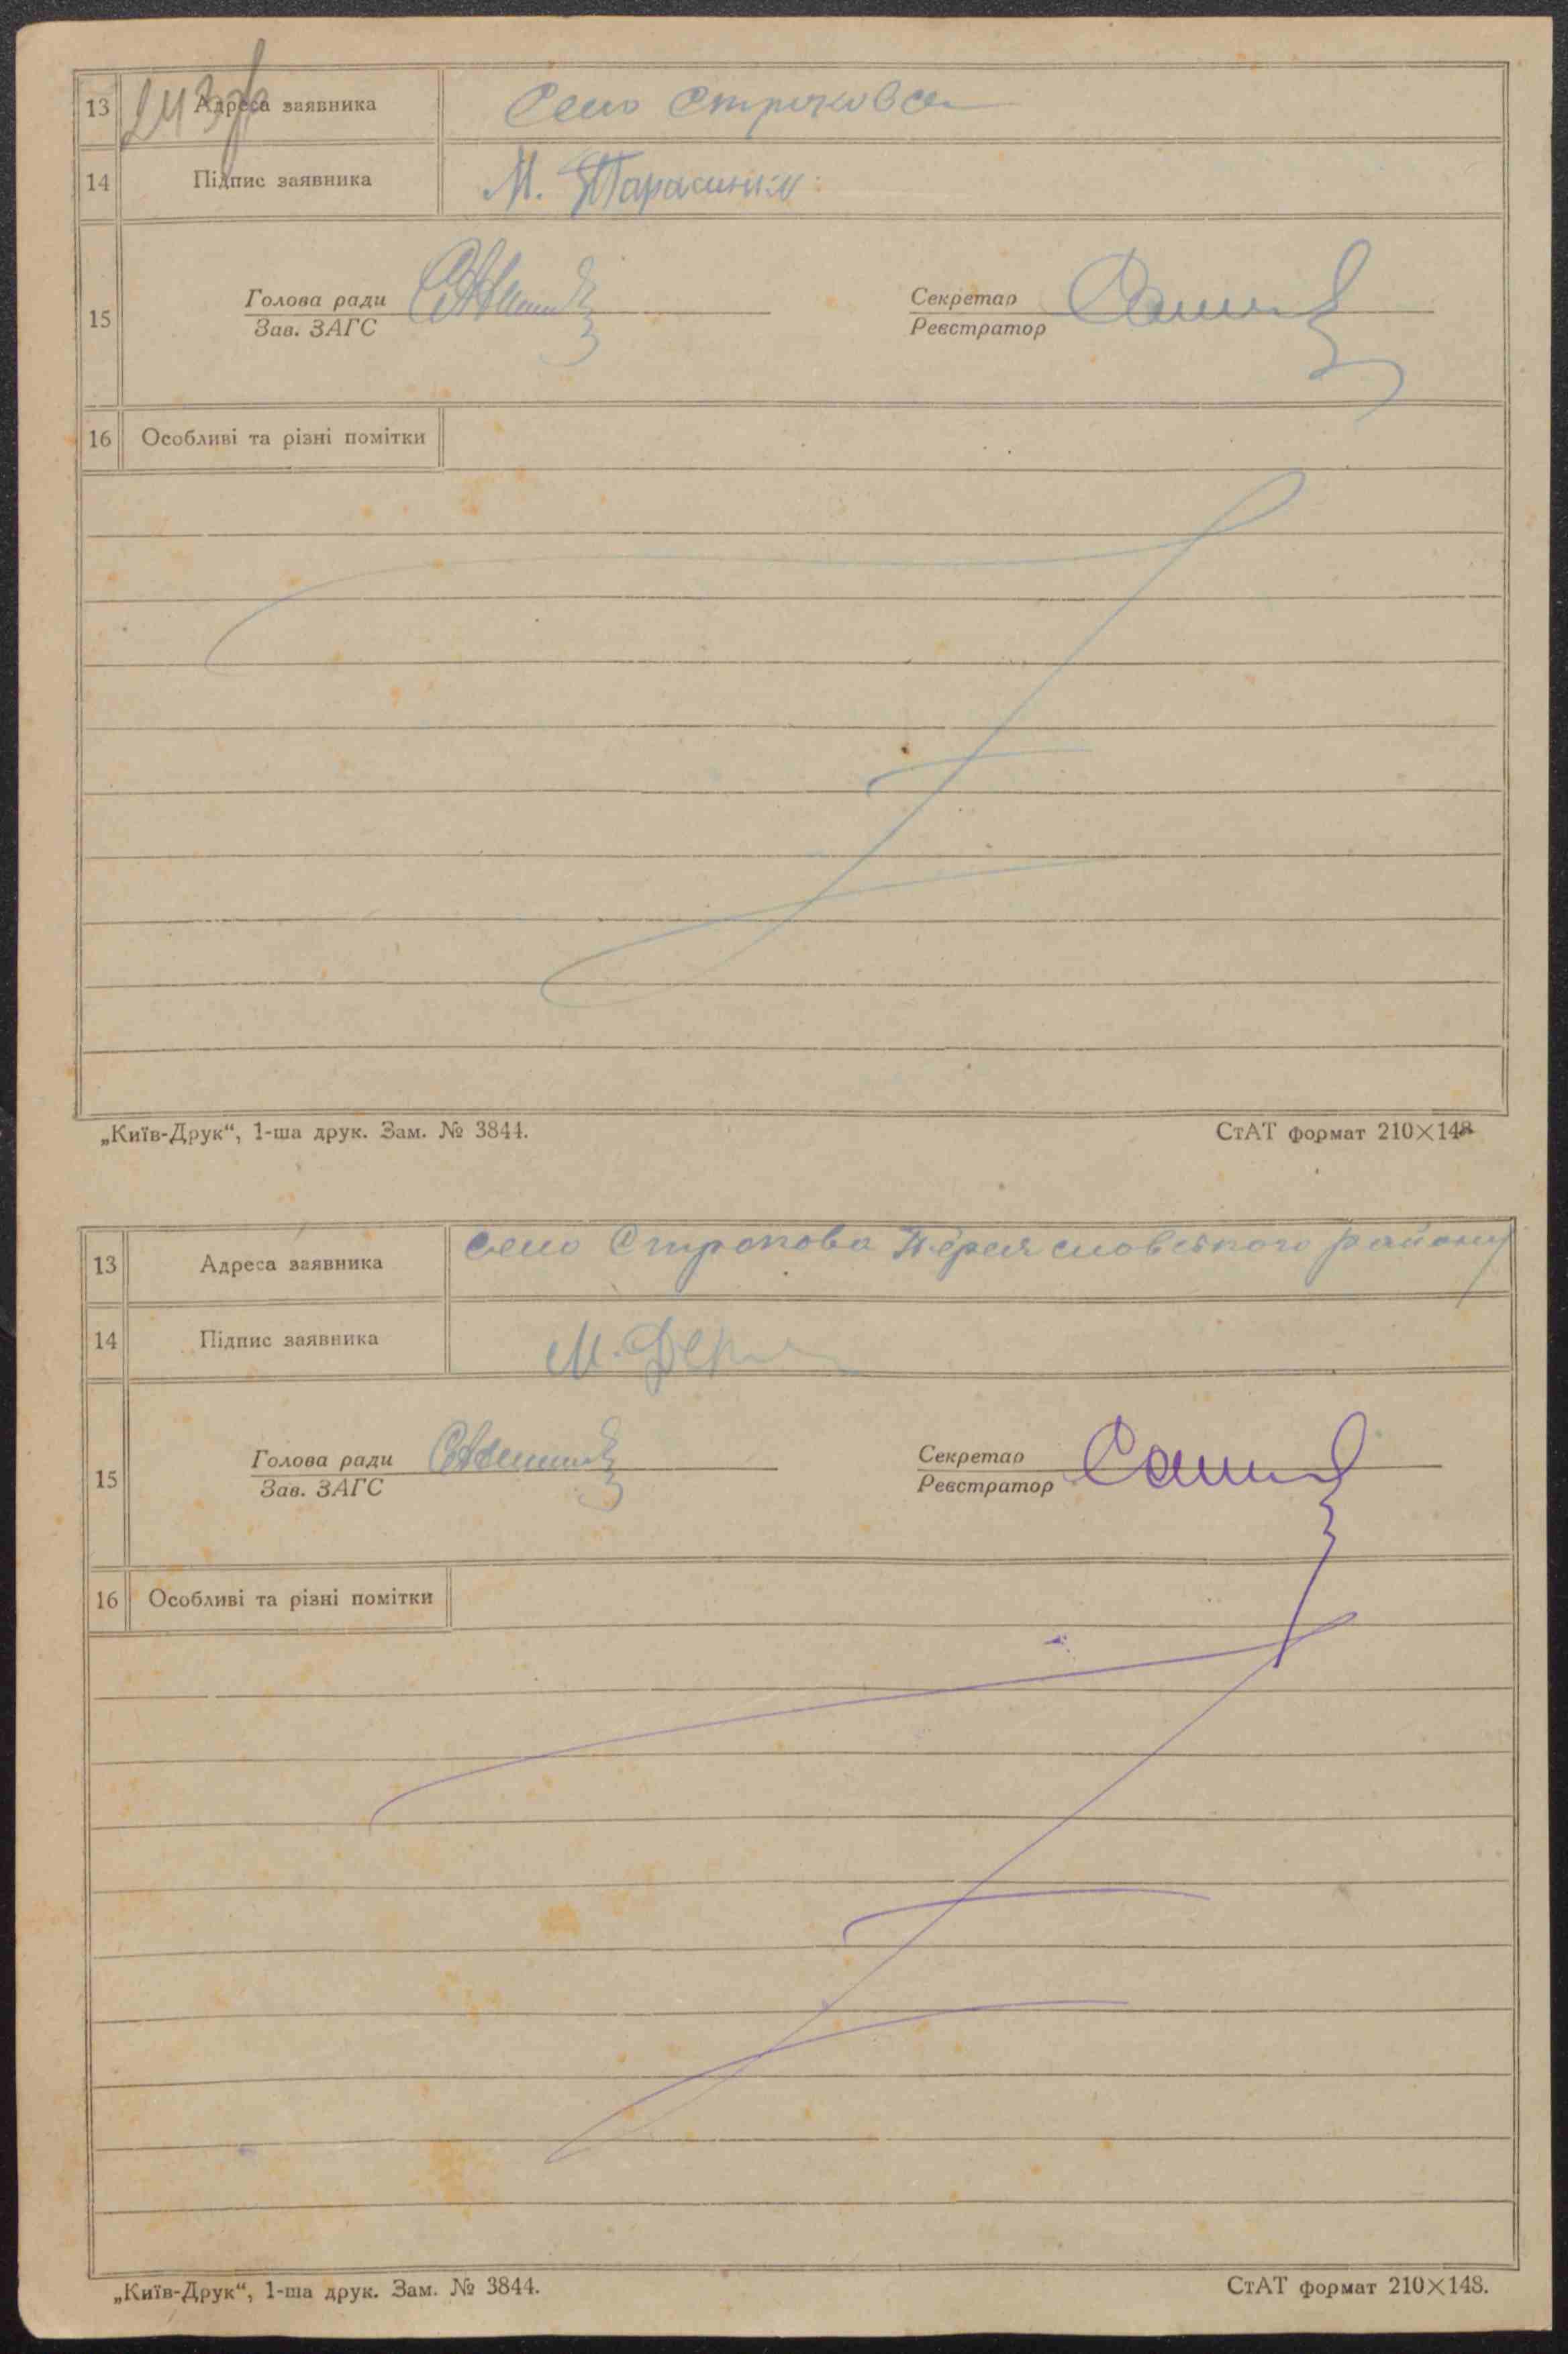 13 Адреса заявника Село Строкова
14 Підпис заявника М. Тарасинко
Голова ради Секретар
15
Зав. ЗАГС Реєстратор
16 Особливі та різні помітки
„Київ-Друк“, 1-ша друк. Зам. № 3844. СтАТ формат 210×148
13 Адреса заявника село Строкова Переяславського району
14 Підпис заявника М.
Голова ради Секретар
15
Зав. ЗАГС Реєстратор
16 Особливі та різні помітки
„Київ-Друк“, 1-ша друк. Зам. № 3844. СтАТ формат 210×148.